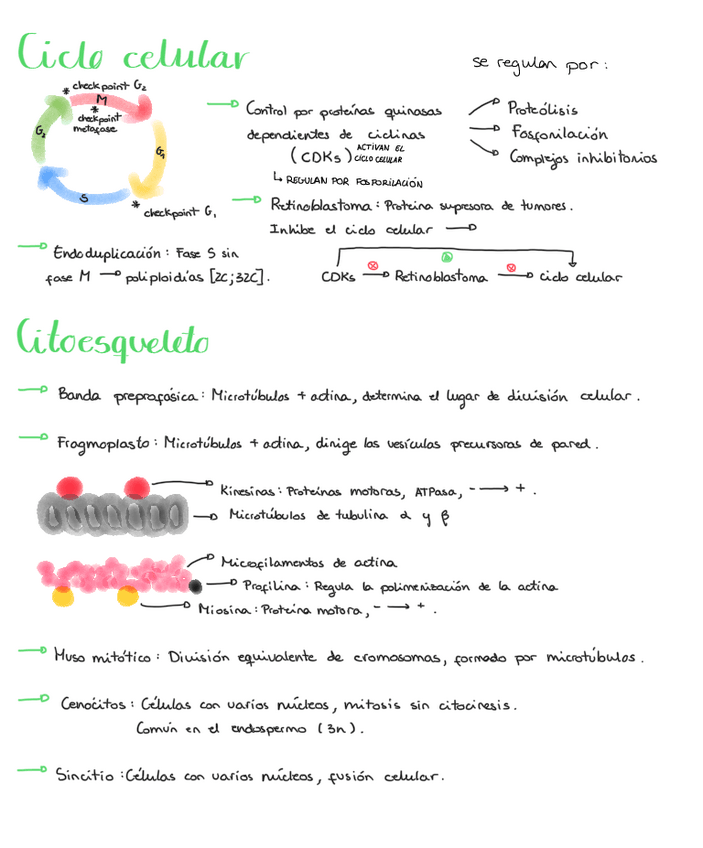 Ciclo celular
se regulan por:
* checkpoint G2
M
* checkpoint
metafase
G2
G1
S
* checkpoint G1
Control por proteínas quinasas
dependientes de ciclinas
(CDKs) ACTIVAN EL
CICLO CELULAR
↳ REGULAN POR FOSFORILACIÓN
Proteólisis
Fosforilación
Complejos inhibitorios
Retinoblastoma: Proteína supresora de tumores.
Inhibe el ciclo celular
Endoduplicación: Fase S sin
fase M → poliploidías [2C;32C].
CDKs → Retinoblastoma → ciclo celular
Citoesqueleto
Banda preprofásica: Microtúbulos + actina, determina el lugar de división celular.
Fragmoplasto: Microtúbulos + actina, dirige las vesículas precursoras de pared.
Kinesinas: Proteínas motoras, ATPasa, - → + .
Microtúbulos de tubulina α y β
Microfilamentos de actina
Profilina: Regula la polimerización de la actina
Miosina: Proteína motora, - → + .
Muso mitótico: División equivalente de cromosomas, formado por microtúbulos.
Cenocitos: Células con varios núcleos, mitosis sin citocinesis.
Común en el endospermo (3n).
Sincitio: Células con varios núcleos, fusión celular.